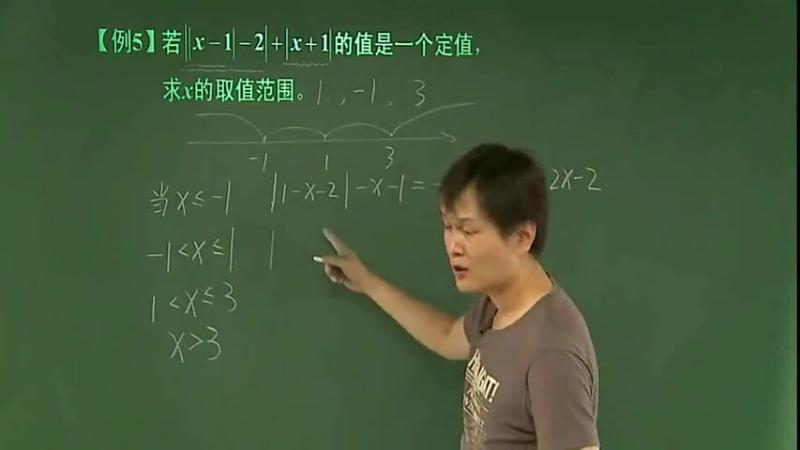 【例5】若||x-1|-2|+|x+1|的值是一个定值,
求x的取值范围。1,-1,3
-1 1 3
当x≤-1 |1-x-2|-x-1=- 2x-2
-1<x≤1 |
1<x≤3
x>3